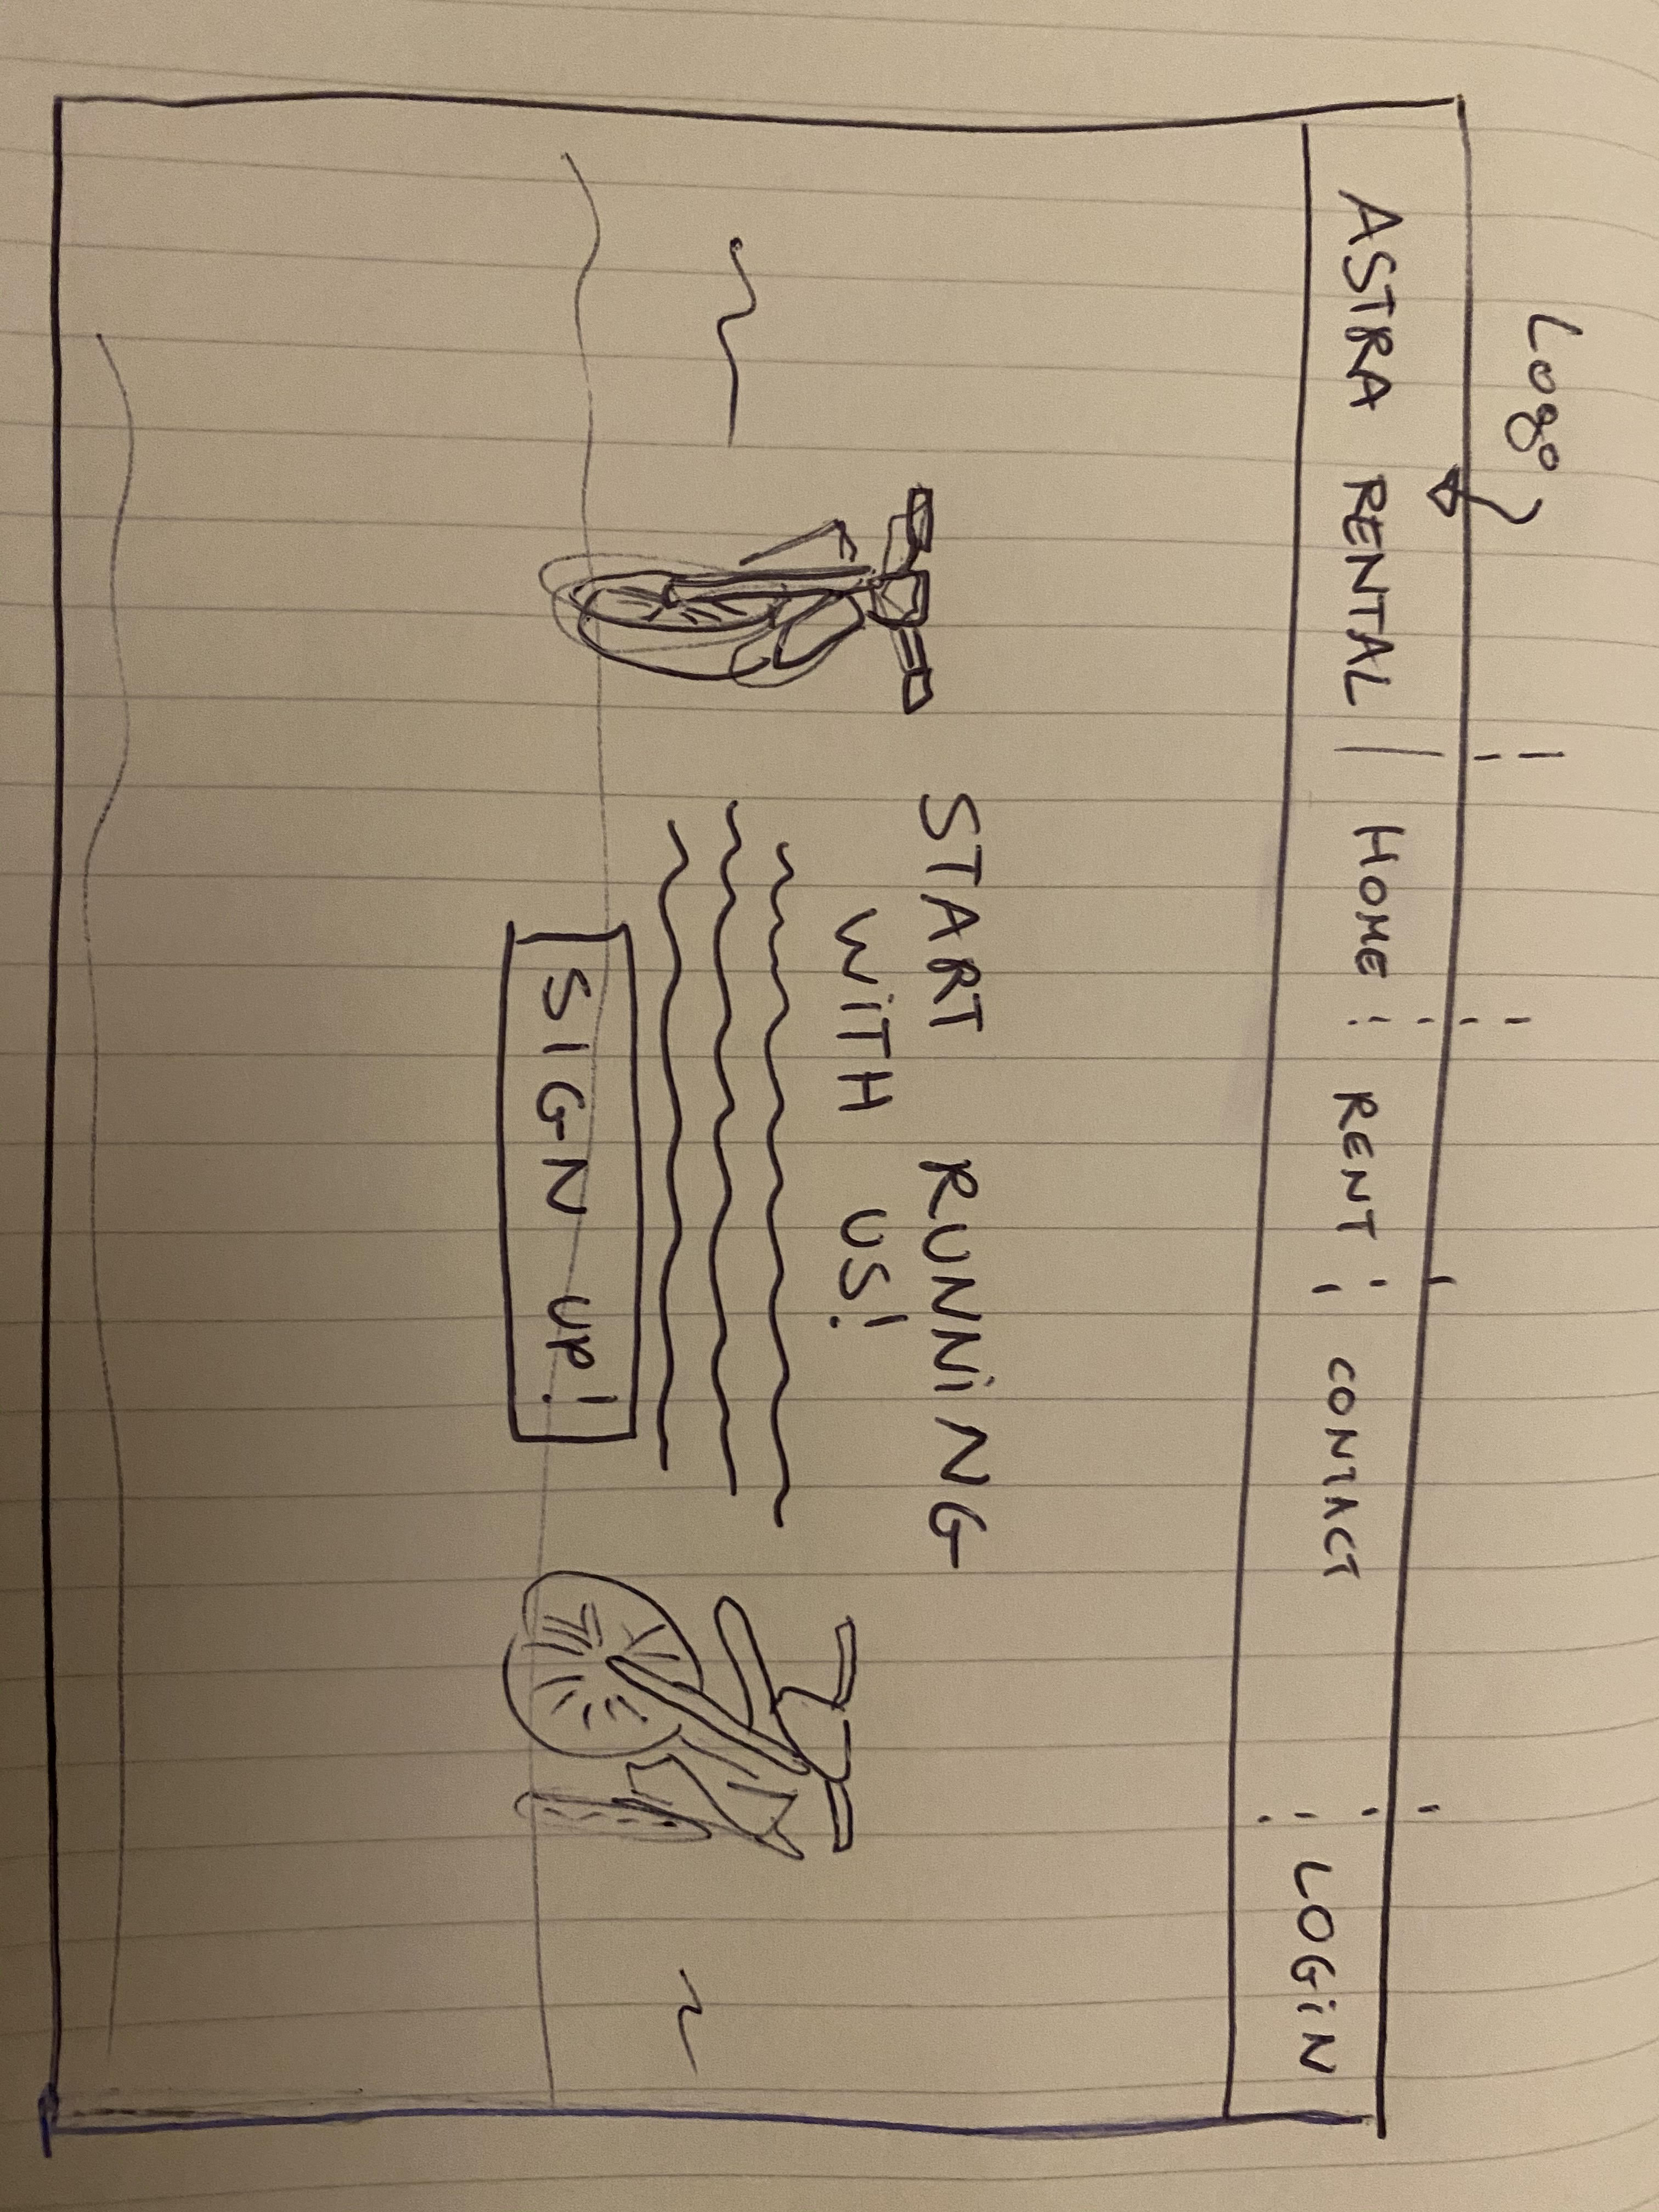 Logo
ASTRA RENTAL | HOME RENT CONTACT LOGiN
START RUNNiNG
WiTH US!
SIGN UP!